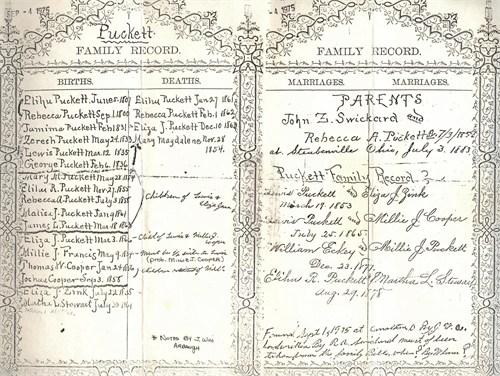 SEP - 4 1975
Puckett
FAMILY RECORD.
BIRTHS.
DEATHS.
Elihu Puckett, June 5, 1801
Rebecca Puckett Sep. 1, 1800
Jamima Puckett Feb 1831
Zoresh Puckett May 24, 1833
Lewis Puckett Mar. 12 1835
George Puckett Feb 6, 1836
Mary M. Puckett May 28 1854
Elihu R. Puckett Nov. 27 1855
Rebecca A Puckett July 3 1858
Malisa J. Puckett Jany 1861
James L. Puckett Mar 18
Eliza J. Puckett Mar 3
Millie J. Francis May 9
Thomas W. Cooper Jan 24
Joshua Cooper Sep 3 1858
Eliza J. Zink July 22 1835
Martha L Stewart July
Elihu Puckett Jan 27
Rebecca Puckett Feb. 1
Eliza J. Puckett Dec. 10
Mary Magdalene Nov. 28
1854.
Children of Lewis &
Eliza Jane
Child of Lewis & Millie J.
Cooper
Must be 2nd wife to Lewis
(prob. Millie J. Cooper)
Children
* NOTES BY J. WM
ARBAUGH
4 1975
FAMILY RECORD.
MARRIAGES.
MARRIAGES.
PARENTS
John Z. Swickard and
Rebecca A. Puckett
at Steubenville Ohio, July 3, 1883
Puckett Family Record
Lewis Puckett and Eliza J. Zink
March 17, 1853
Lewis Puckett and Millie J Cooper
July 25, 1865.
William Eckey and Millie J. Puckett
Dec. 23, 1877.
Elihue R. Puckett & Martha L. Stewart
Aug. 29, 1878
Found Sept 1, 1975 at By J.
handwritten By R. A. Swickard must of been
the family Bible, when? By Whom?